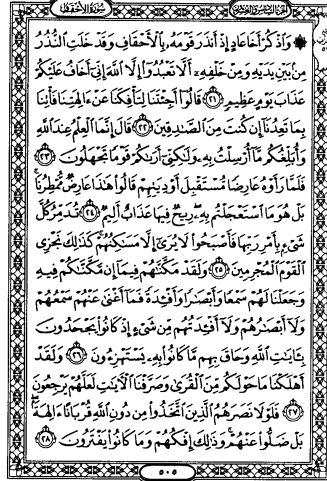 الجزء السادس والعشرون سورة الأحقاف
۞ وَاذْكُرْ أَخَا عَادٍ إِذْ أَنذَرَ قَوْمَهُ بِالْأَحْقَافِ وَقَدْ خَلَتِ النُّذُرُ
مِن بَيْنِ يَدَيْهِ وَمِنْ خَلْفِهِ أَلَّا تَعْبُدُوا إِلَّا اللَّهَ إِنِّي أَخَافُ عَلَيْكُمْ
عَذَابَ يَوْمٍ عَظِيمٍ ۝٢١ قَالُوا أَجِئْتَنَا لِتَأْفِكَنَا عَنْ آلِهَتِنَا فَأْتِنَا
بِمَا تَعِدُنَا إِن كُنتَ مِنَ الصَّادِقِينَ ۝٢٢ قَالَ إِنَّمَا الْعِلْمُ عِندَ اللَّهِ
وَأُبَلِّغُكُم مَّا أُرْسِلْتُ بِهِ وَلَٰكِنِّي أَرَاكُمْ قَوْمًا تَجْهَلُونَ ۝٢٣
فَلَمَّا رَأَوْهُ عَارِضًا مُّسْتَقْبِلَ أَوْدِيَتِهِمْ قَالُوا هَٰذَا عَارِضٌ مُّمْطِرُنَا ۚ
بَلْ هُوَ مَا اسْتَعْجَلْتُم بِهِ ۖ رِيحٌ فِيهَا عَذَابٌ أَلِيمٌ ۝٢٤ تُدَمِّرُ كُلَّ
شَيْءٍ بِأَمْرِ رَبِّهَا فَأَصْبَحُوا لَا يُرَىٰ إِلَّا مَسَاكِنُهُمْ ۚ كَذَٰلِكَ نَجْزِي
الْقَوْمَ الْمُجْرِمِينَ ۝٢٥ وَلَقَدْ مَكَّنَّاهُمْ فِيمَا إِن مَّكَّنَّاكُمْ فِيهِ
وَجَعَلْنَا لَهُمْ سَمْعًا وَأَبْصَارًا وَأَفْئِدَةً فَمَا أَغْنَىٰ عَنْهُمْ سَمْعُهُمْ
وَلَا أَبْصَارُهُمْ وَلَا أَفْئِدَتُهُم مِّن شَيْءٍ إِذْ كَانُوا يَجْحَدُونَ
بِآيَاتِ اللَّهِ وَحَاقَ بِهِم مَّا كَانُوا بِهِ يَسْتَهْزِئُونَ ۝٢٦ وَلَقَدْ
أَهْلَكْنَا مَا حَوْلَكُم مِّنَ الْقُرَىٰ وَصَرَّفْنَا الْآيَاتِ لَعَلَّهُمْ يَرْجِعُونَ
۝٢٧ فَلَوْلَا نَصَرَهُمُ الَّذِينَ اتَّخَذُوا مِن دُونِ اللَّهِ قُرْبَانًا آلِهَةً ۖ
بَلْ ضَلُّوا عَنْهُمْ ۚ وَذَٰلِكَ إِفْكُهُمْ وَمَا كَانُوا يَفْتَرُونَ ۝٢٨
٥٠٥